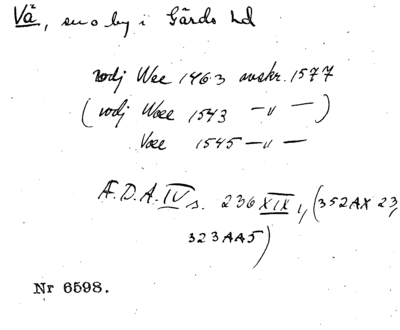 Vå, sn o by i Gärds hd
vdj Wee 1463 avskr. 1577
(vdj Woee 1543 — " —)
Voee 1545 — " —
Æ.D.A. IV s. 236 XIX 1, (352 AX 23,
323 AA5)
Nr 6598.